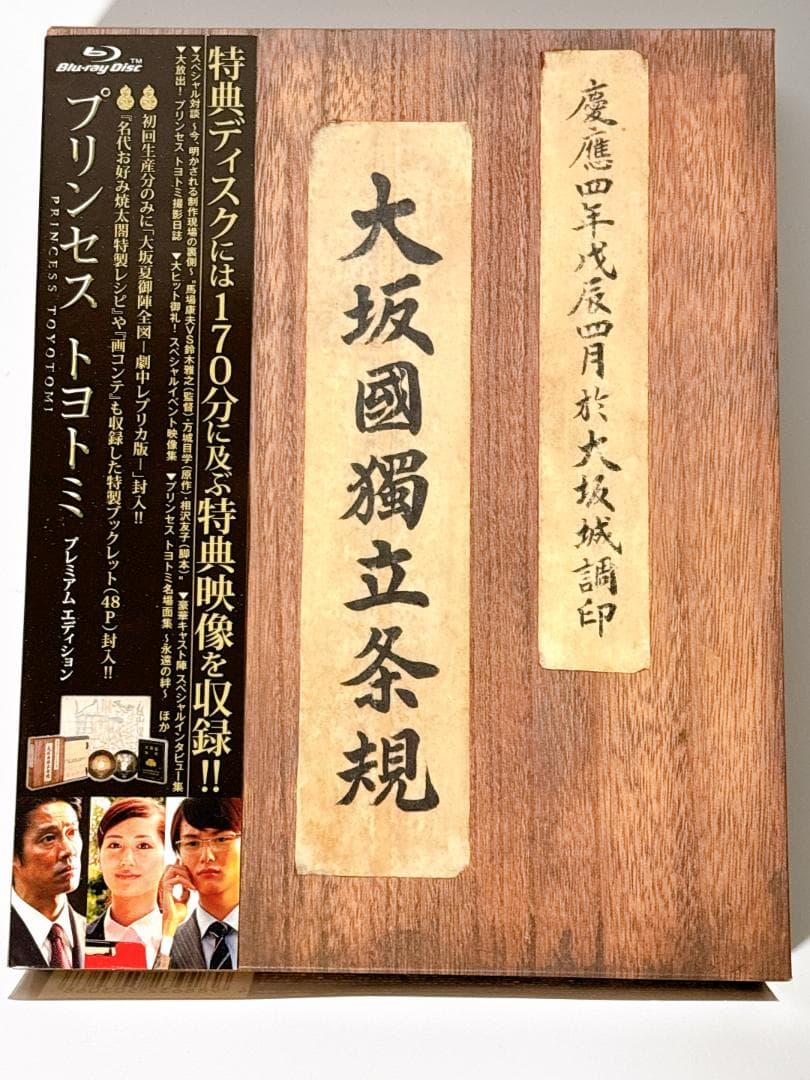 慶應四年戊辰四月於大坂城調印
大坂國獨立条規
特典ディスクには170分に及ぶ特典映像を収録!!
▼スペシャル対談 〜今、明かされる制作現場の裏側〜 "馬場康夫VS鈴木雅之(監督)・万城目学(原作)・相沢友子(脚本)" ▼豪華キャスト陣 スペシャルインタビュー集
▼大放出! プリンセス トヨトミ撮影日誌 ▼大ヒット御礼! スペシャルイベント映像集 ▼プリンセス トヨトミ名場面集 〜永遠の絆〜 ほか
Blu-ray Disc™
初回生産分のみに「大坂夏御陣全図−劇中レプリカ版−」封入!!
『名代お好み焼太閤特製レシピ』や『画コンテ』も収録した特製ブックレット(48P)封入!!
プリンセス トヨトミ プレミアム エディション
PRINCESS TOYOTOMI